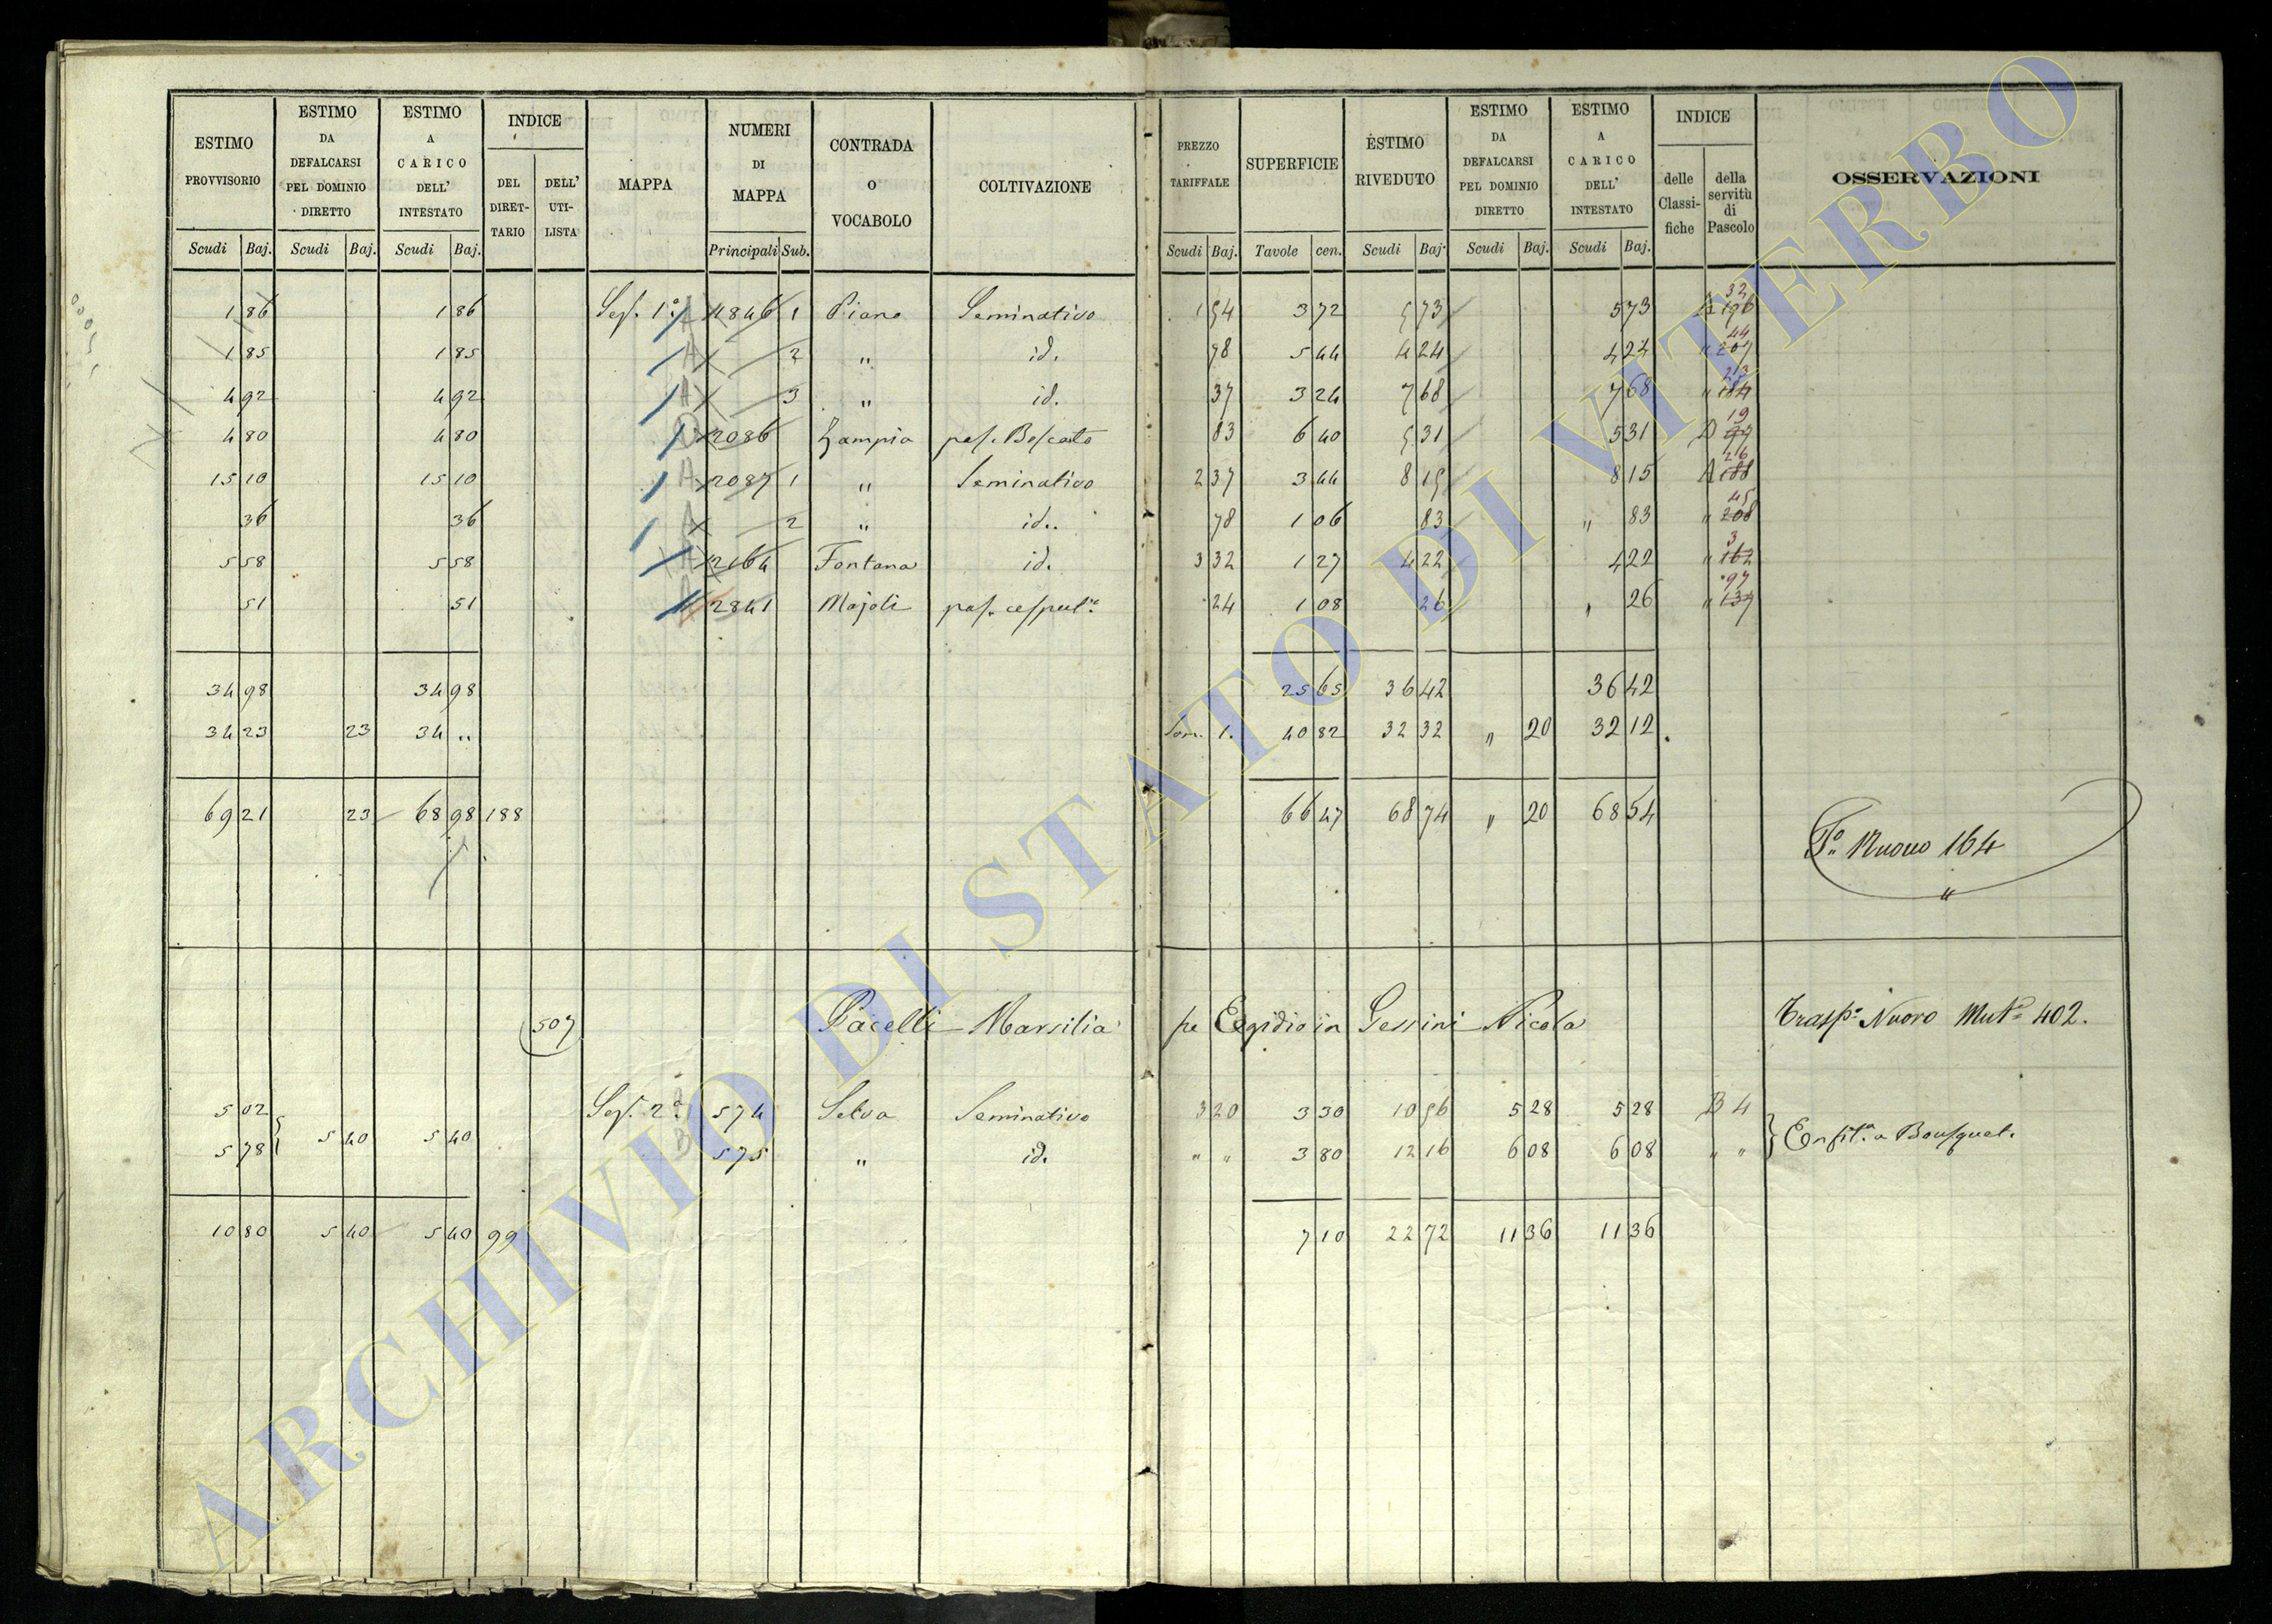 ESTIMO PROVVISORIO
ESTIMO DA DEFALCARSI PEL DOMINIO DIRETTO
ESTIMO A CARICO DELL' INTESTATO
INDICE
DEL DIRET-TARIO
DELL' UTI-LISTA
MAPPA
NUMERI DI MAPPA
CONTRADA O VOCABOLO
COLTIVAZIONE
PREZZO TARIFFALE
SUPERFICIE
ESTIMO RIVEDUTO
ESTIMO DA DEFALCARSI PEL DOMINIO DIRETTO
ESTIMO A CARICO DELL' INTESTATO
INDICE
delle Classi-fiche
della servitù di Pascolo
OSSERVAZIONI
Scudi Baj. Scudi Baj. Scudi Baj. Principali Sub. Scudi Baj. Tavole cen. Scudi Baj. Scudi Baj. Scudi Baj.
1 86 1 86 Sez. 1ª 1846 1 Piano Seminativo 1 54 3 72 5 73 5 73 A 196 32
1 85 1 85 2 " id. 78 5 44 4 24 4 24 " 207 44
4 92 4 92 3 " id. 37 3 24 7 68 7 68 " 184 23
4 80 4 80 2086 Zampia pas. Boscato 83 6 40 5 31 5 31 D 97 19
15 10 15 10 2087 1 " Seminativo 2 37 3 44 8 15 8 15 A 188 26
36 36 2 " id. 78 1 06 83 " 83 " 208 45
5 58 5 58 2164 Fontana id. 3 32 1 27 4 22 4 22 " 162 3
51 51 2841 Majoli pas. cesput.º 24 1 08 26 " 26 " 137 97
34 98 34 98 25 65 36 42 36 42
34 23 23 34 " Som. 1. 40 82 32 32 " 20 32 12
69 21 23 68 98 188 66 47 68 74 " 20 68 54
Tº Nuovo 164
"
507 Pacelli Marsilia Egidio in Gessini Nicola Trasp.º Nuovo Mut.ª 402.
5 02 Sez. 2ª 574 Selva Seminativo 3 20 3 30 10 56 5 28 5 28 B 4
5 40 5 40
5 78 B 575 " id. " " 3 80 12 16 6 08 6 08 " " Enfit.ª a Bousquet.
10 80 5 40 5 40 99 7 10 22 72 11 36 11 36
ARCHIVIO DI STATO DI VITERBO